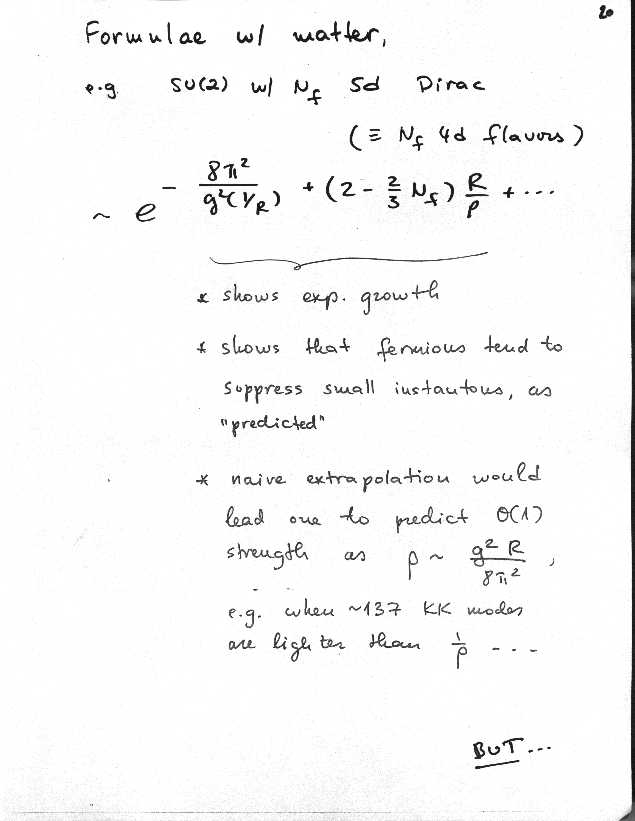 20
Formulae w/ matter,
e.g. SU(2) w/ N_f 5d Dirac
(≡ N_f 4d flavors)
~ e^{- 8π²/g²(1/R) + (2 - 2/3 N_f) R/ρ + ...}
* shows exp. growth
* shows that fermions tend to
suppress small instantons, as
"predicted"
* naive extrapolation would
lead one to predict O(1)
strength as ρ ~ g² R / 8π² ,
e.g. when ~137 KK modes
are lighter than 1/ρ ...
BUT...